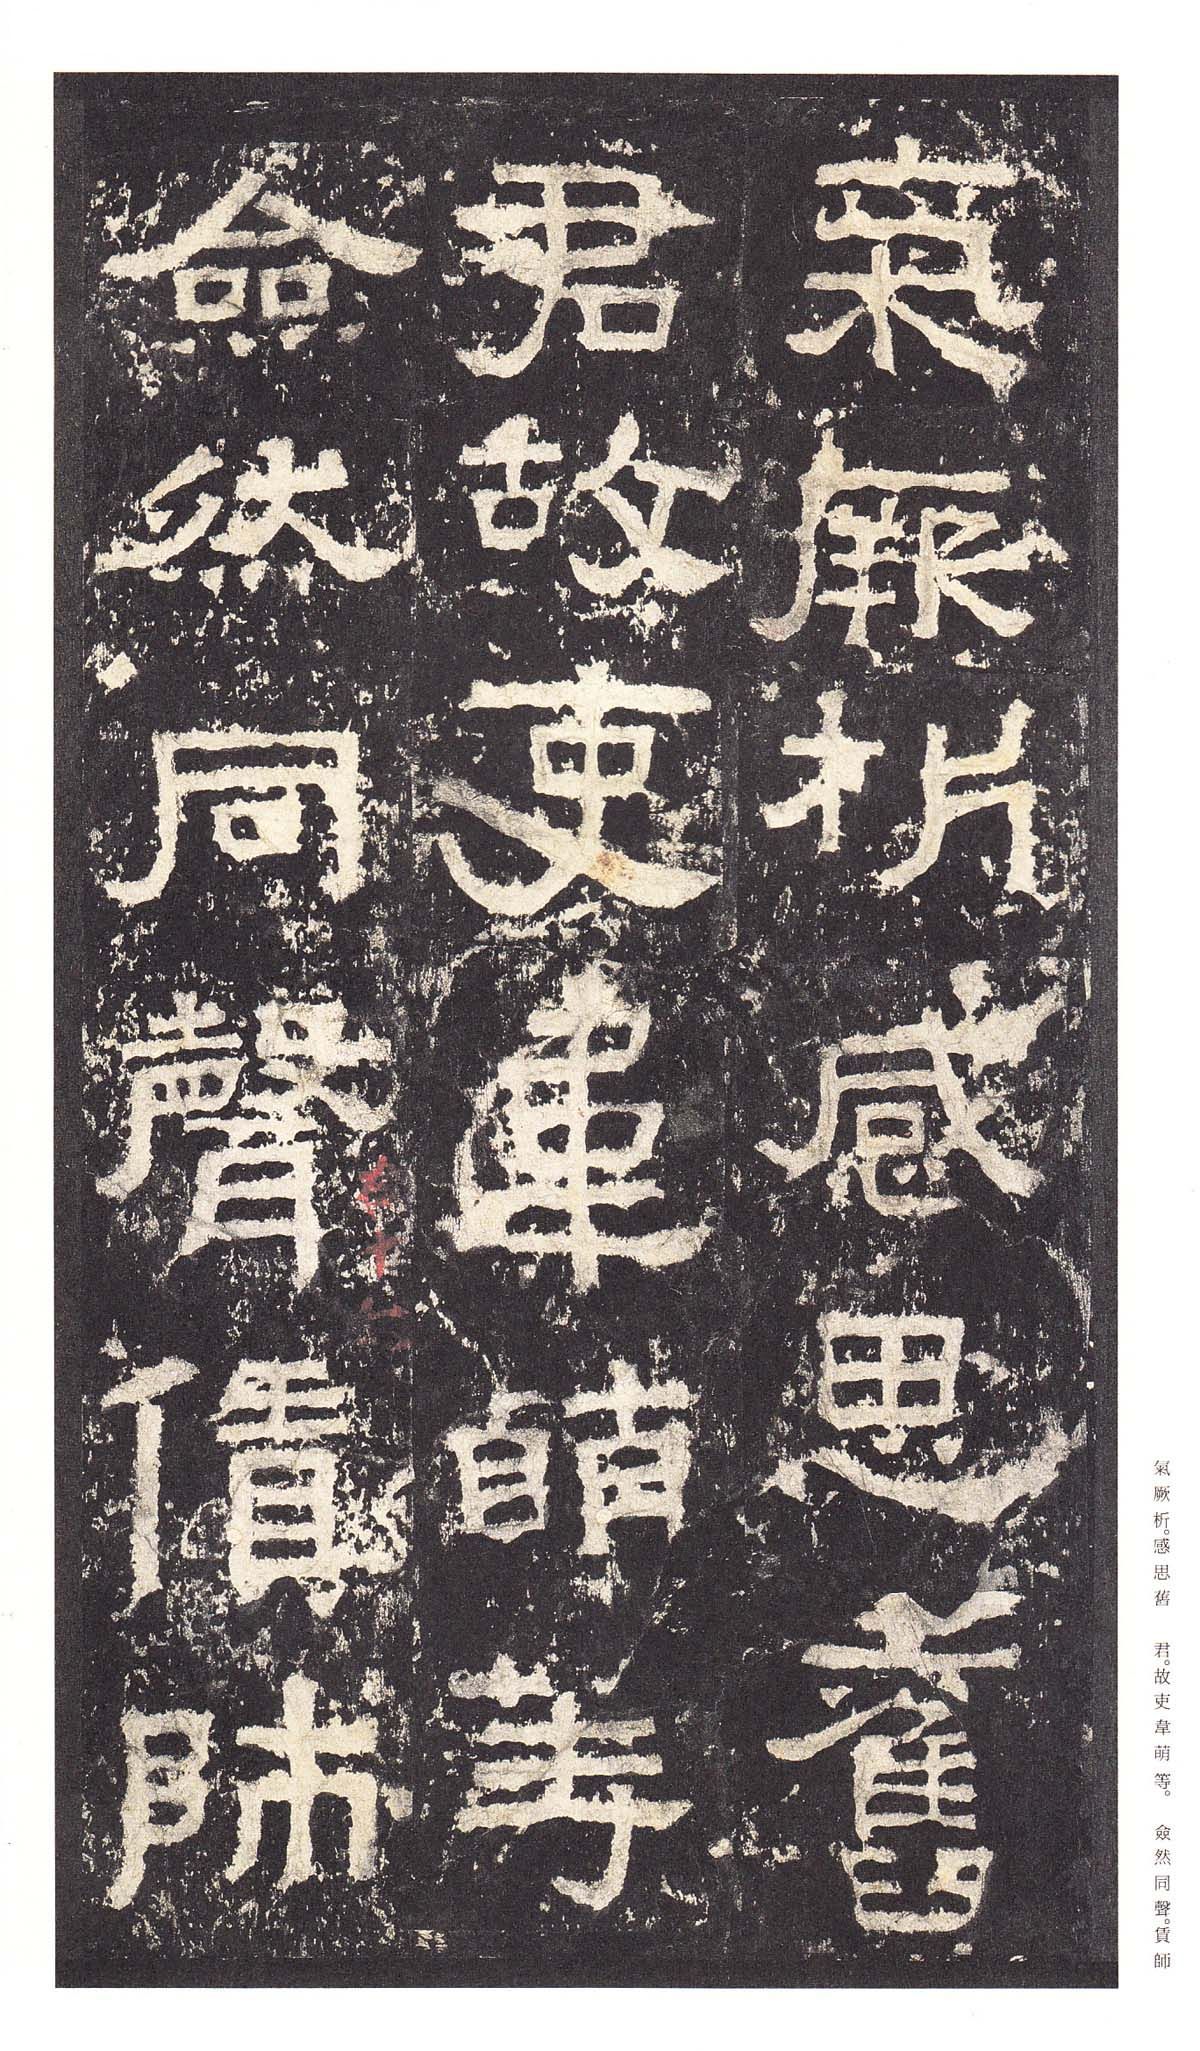 氣厥析感思舊
君故吏韋萌等
僉然同聲賃師
氣厥析。感思舊　君。故吏韋萌等。　僉然同聲。賃師